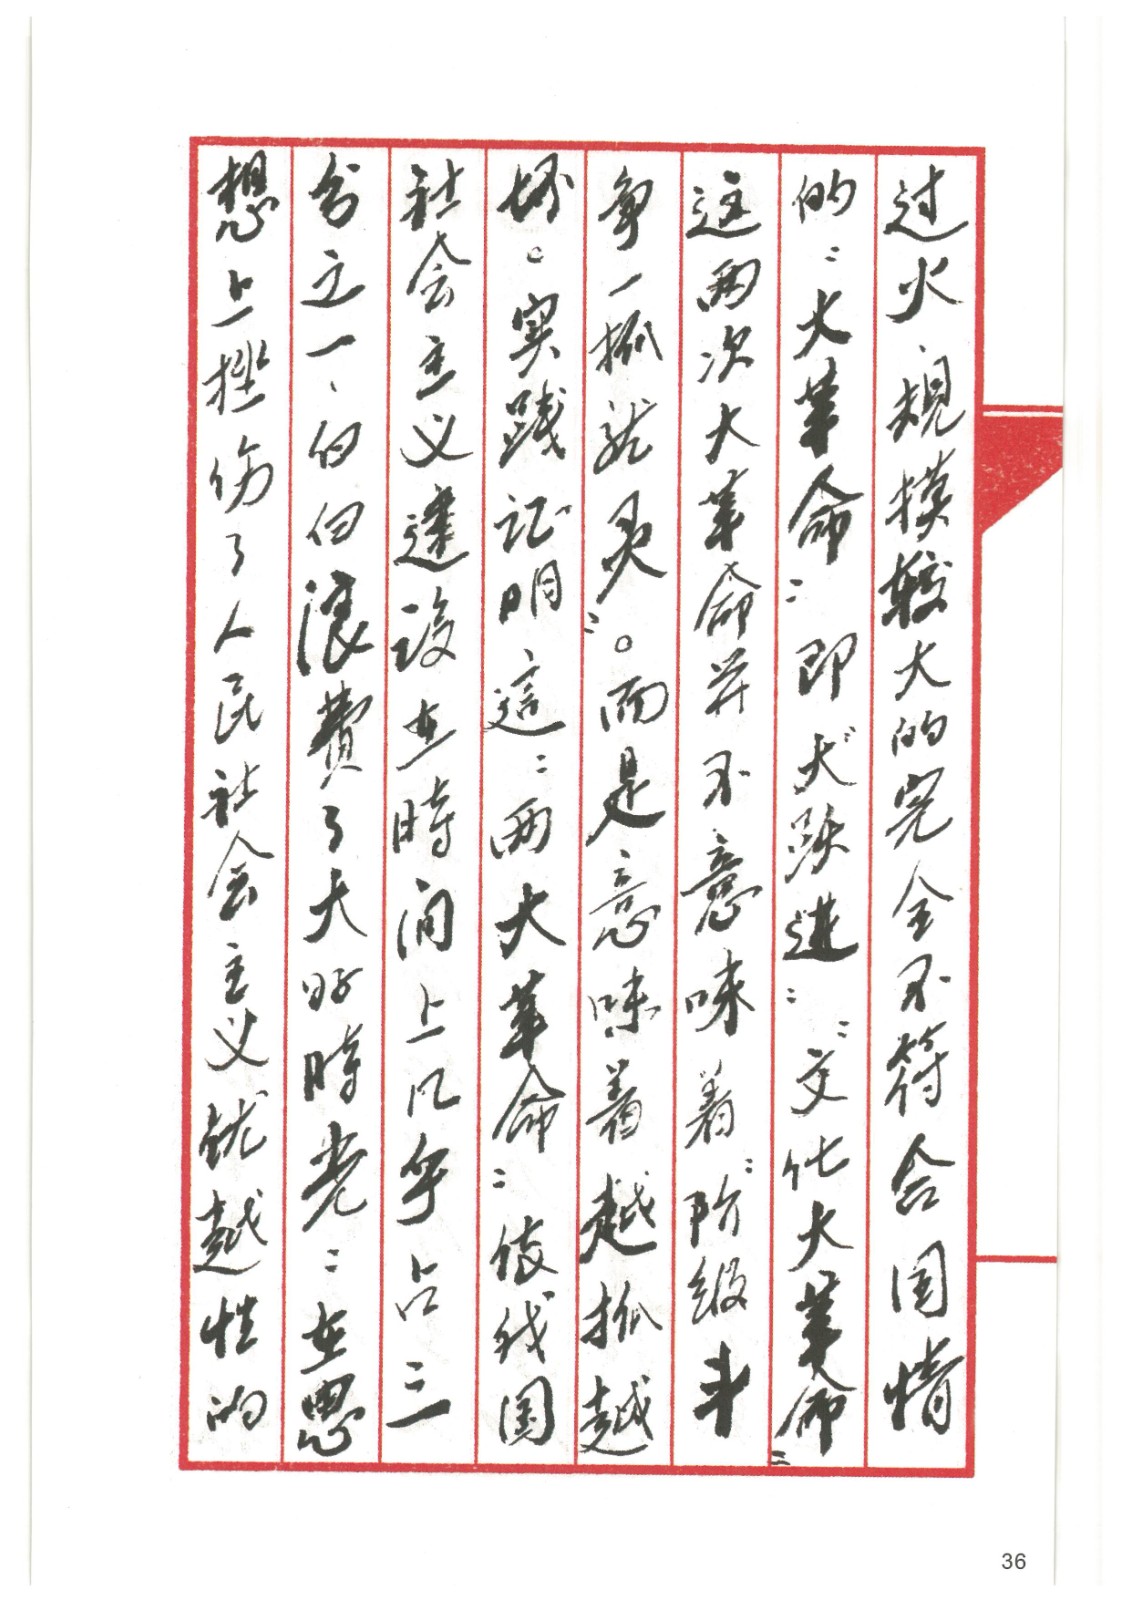 过火、规模较大的完全不符合国情
的“大革命”即“大跃进”“文化大革命”
这两次大革命并不意味着“阶级斗
争一抓就灵”。而是意味着越抓越
坏。实践证明這“两大革命”使我国
社会主义建设在時间上几乎占三
分之一、白白浪費了大好時光：在思
想上挫伤了人民社会主义优越性的
36